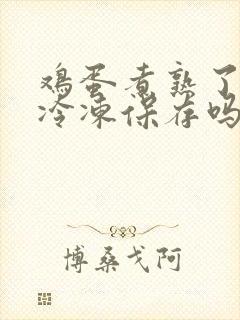 鸡蛋煮熟了
冷凍保存吗
博桑戈阿